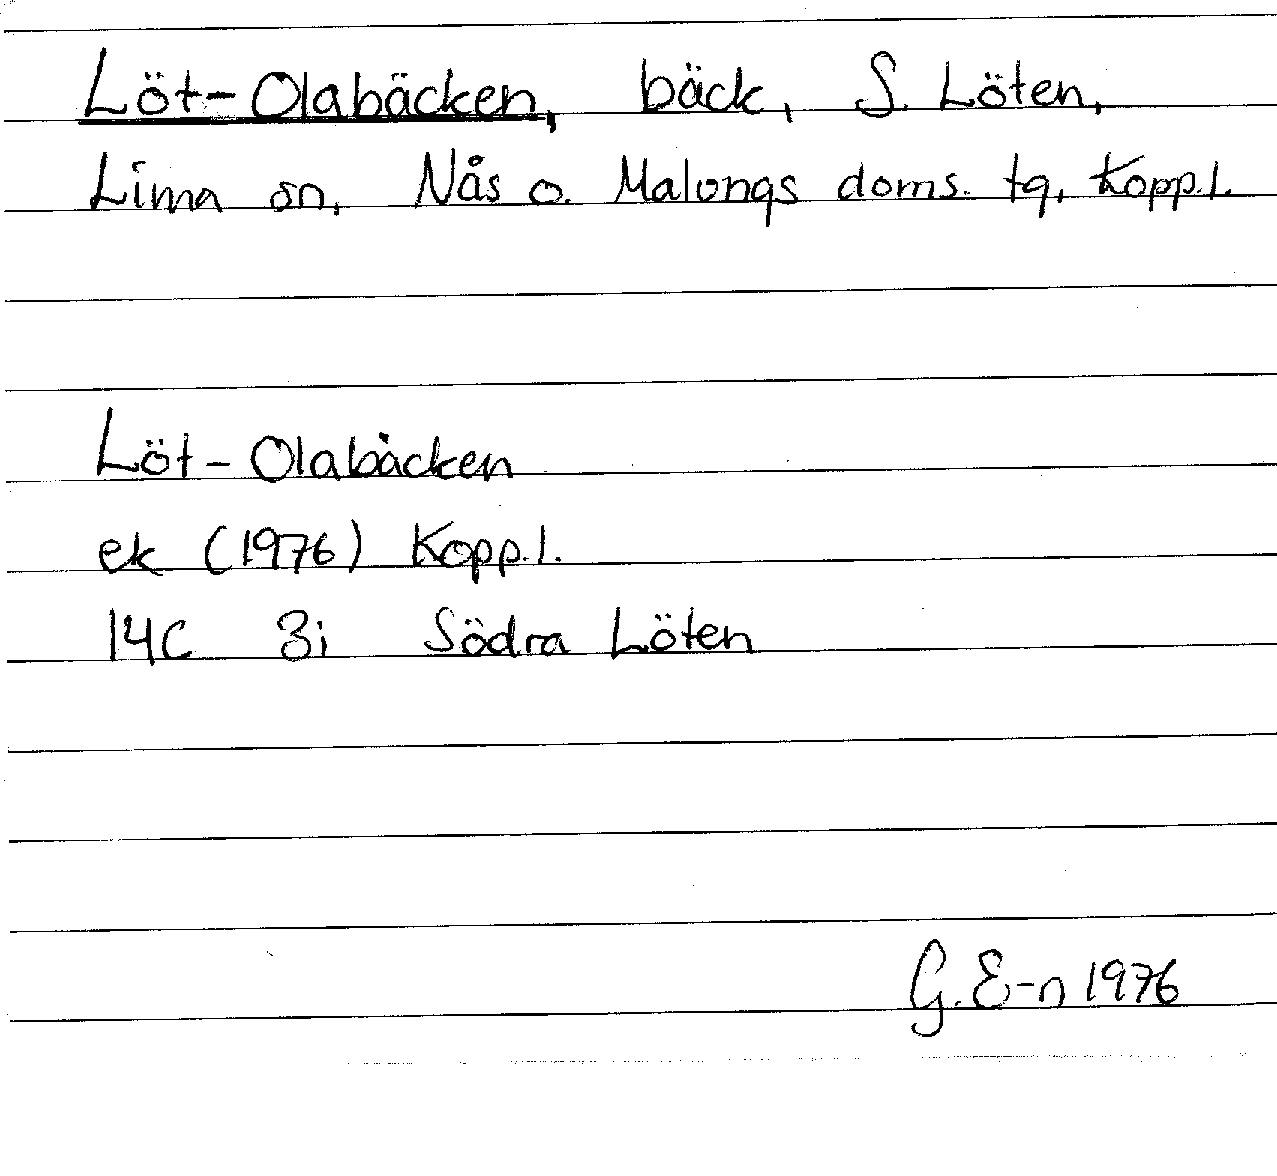 Löt-Olabäcken, bäck, S. Löten,
Lima sn, Nås o. Malungs doms. tg, Kopp.l.
Löt-Olabäcken
ek (1976) Kopp.l.
14C 3i Södra Löten
G.E-n 1976